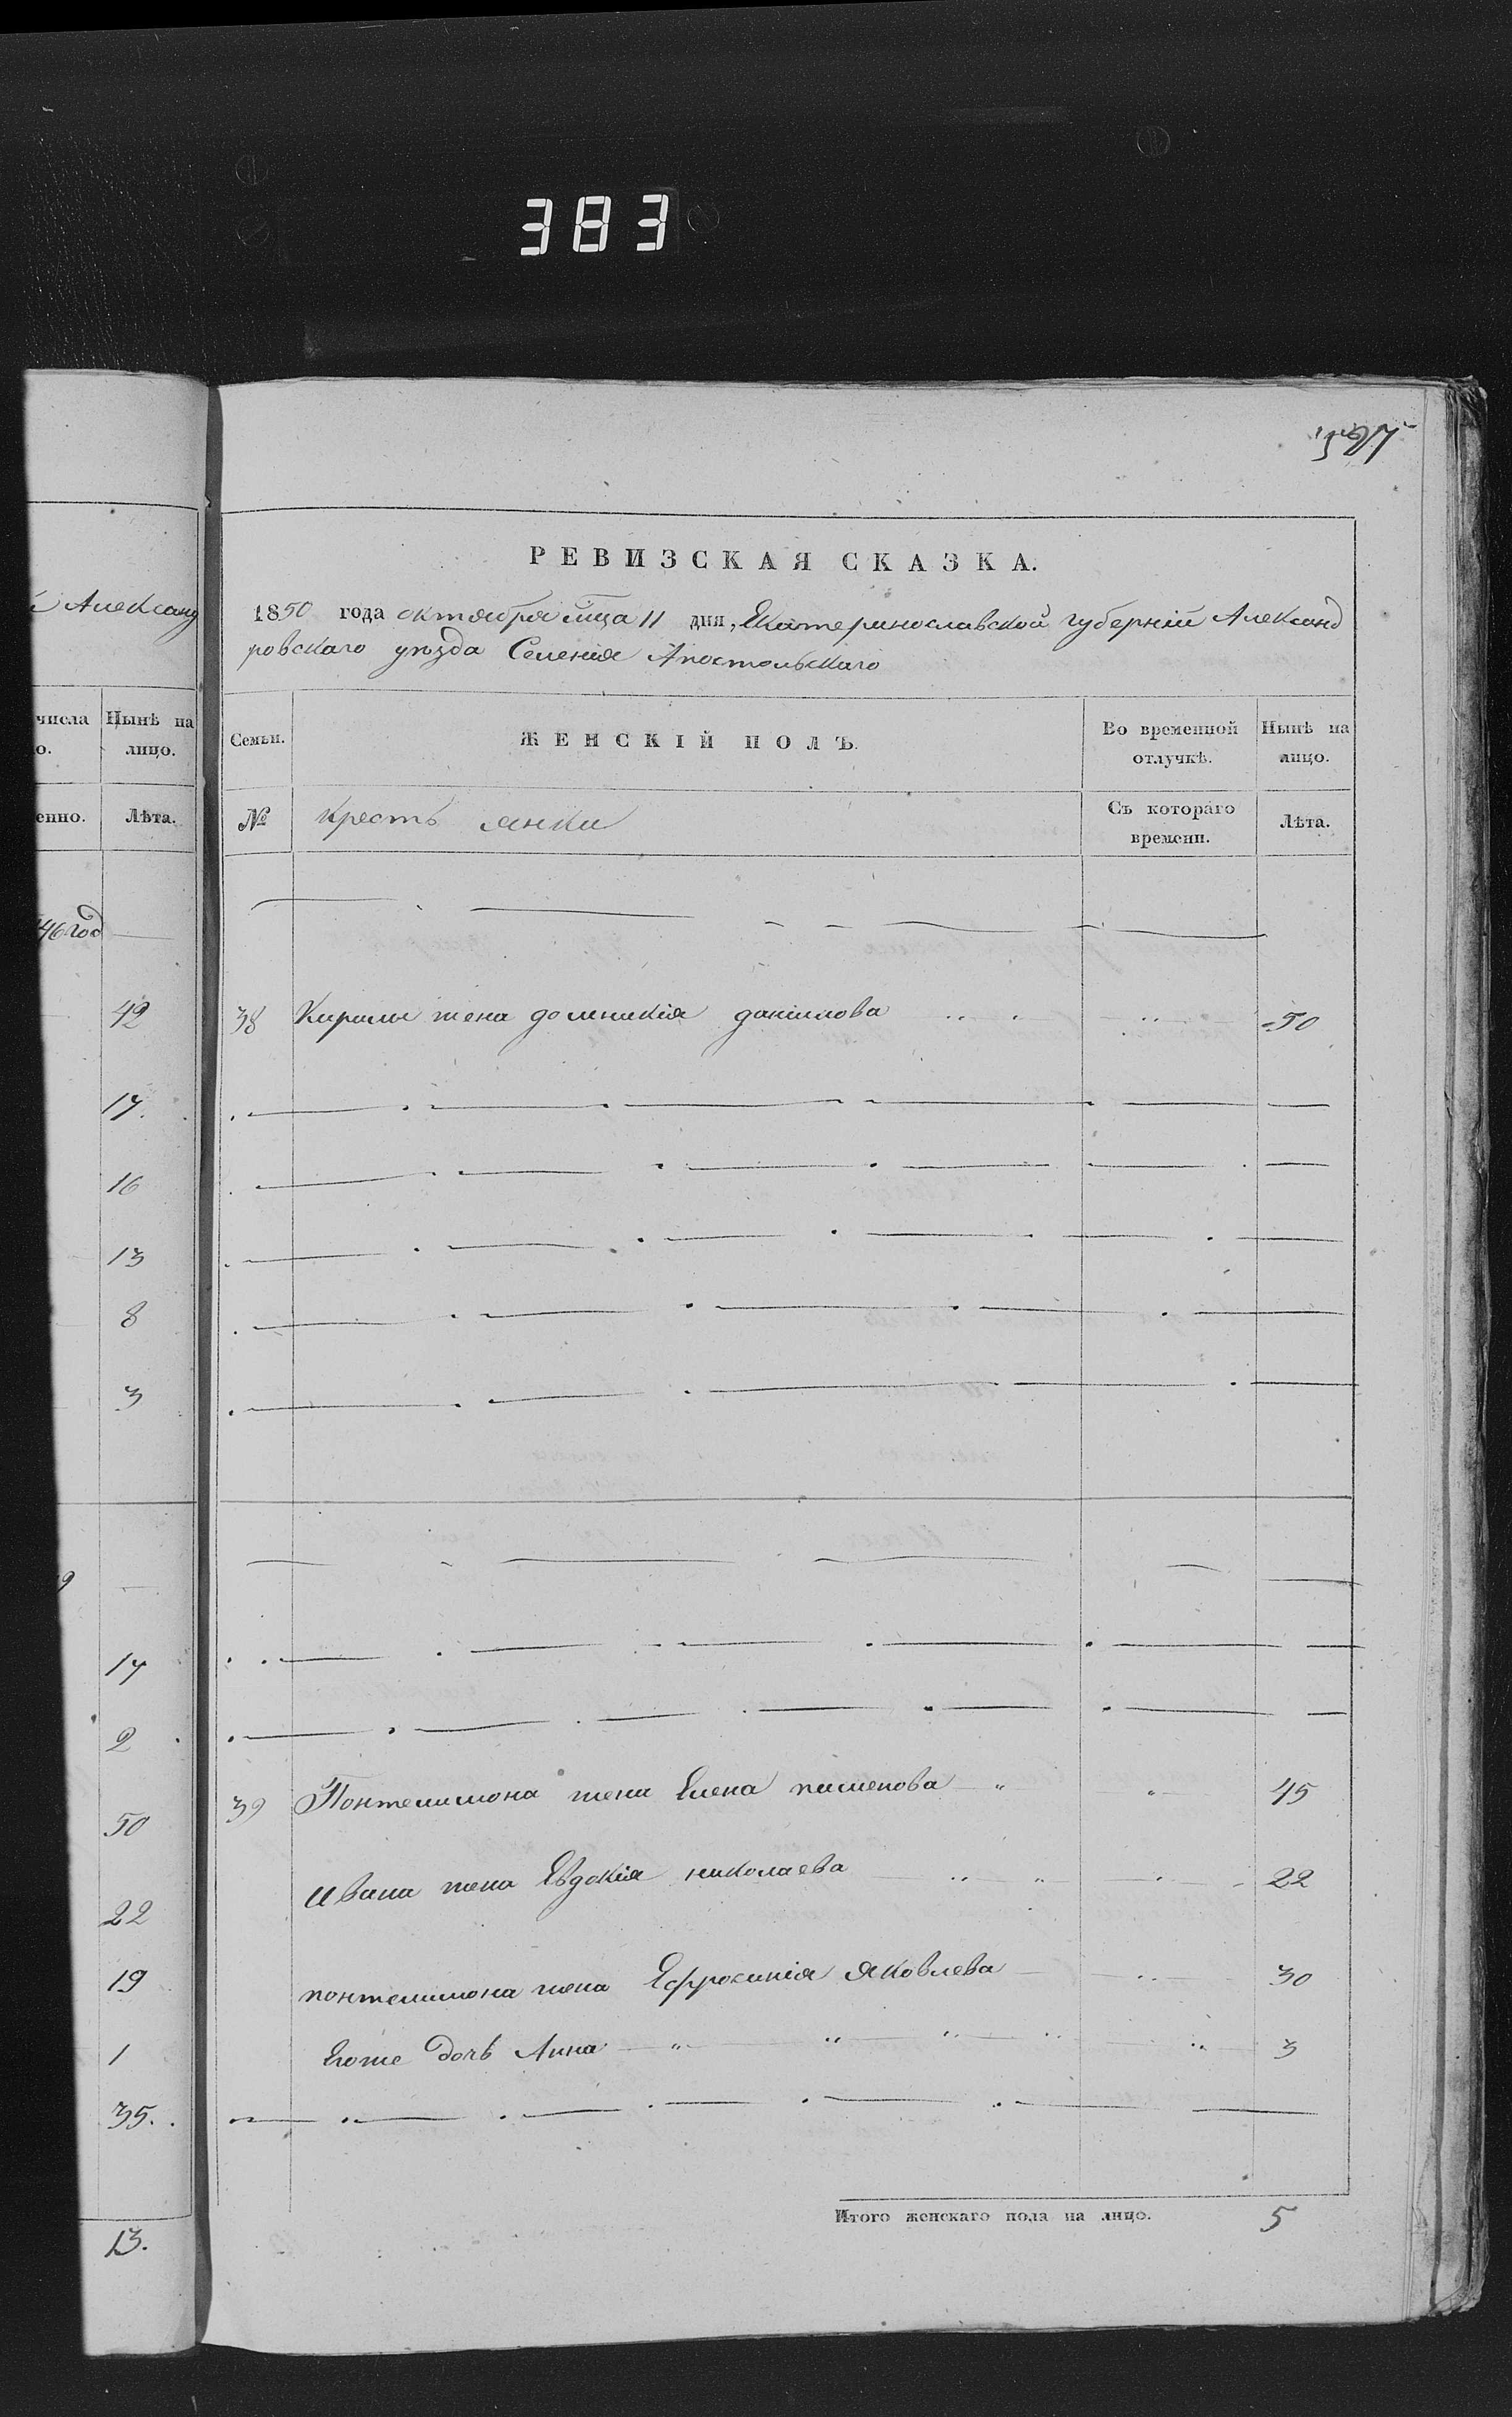 383
РЕВИЗСКАЯ СКАЗКА.
1850 года октября мца 11 дня, Екатеринославской губерніи Александ
ровскаго уѣзда Селенія Апостольскаго
Семьи.
ЖЕНСКІЙ ПОЛЪ.
Во временной отлучкѣ.
Нынѣ на лицо.
№
Крестьянки
Съ котораго времени.
Лѣта.
38 Кирилы жена доменикія данилова 50
39 Понтелимона жена Елена пименова 45
Ивана жена Евдокія николаева 22
понтелимона жена Ефросинія Яковлева 30
Егоже дочь Анна 3
Итого женскаго пола на лицо. 5
Александ
числа
о.
Нынѣ на лицо.
енно.
Лѣта.
46 год
42
17.
16
13
8
3
9
14
2
50
22
19
1
35.
13.